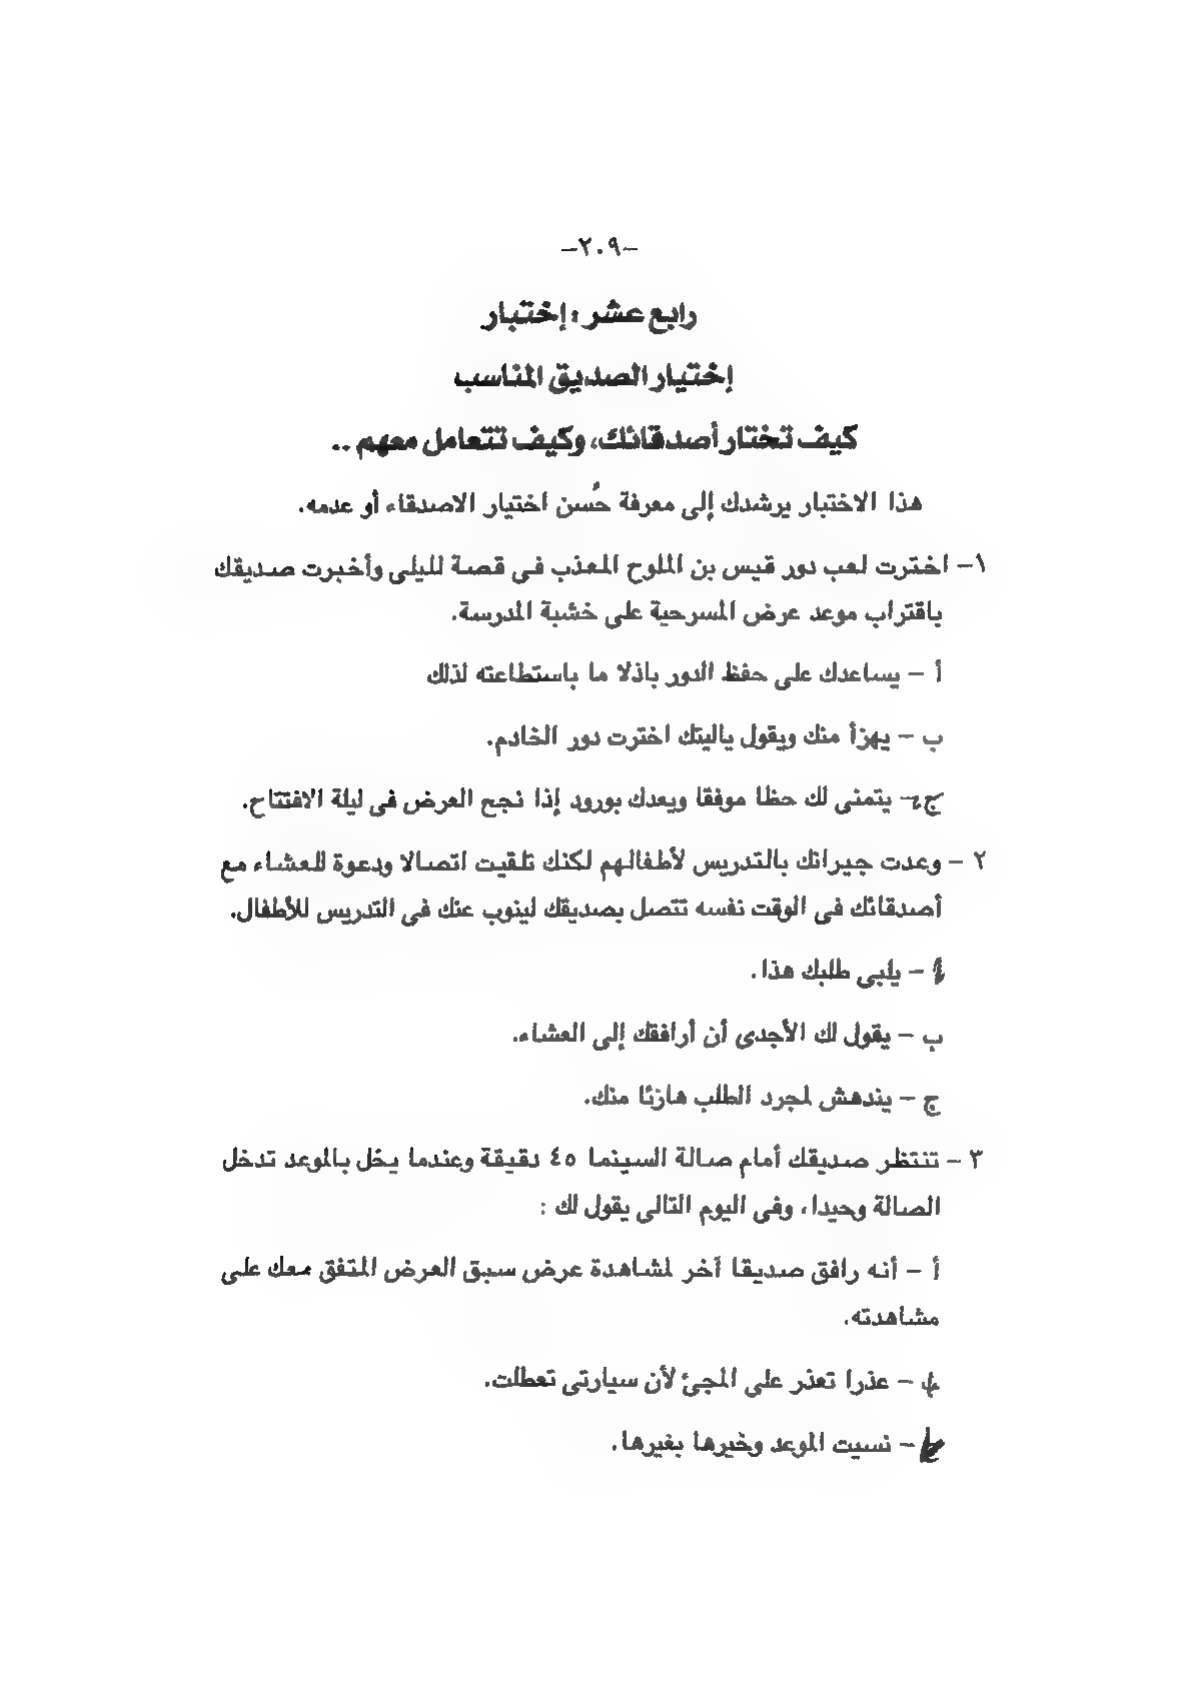 -٢٠٩-
رابع عشر : إختبار
إختيار الصديق المناسب
كيف تختار أصدقائك، وكيف تتعامل معهم ..
هذا الاختبار يرشدك إلى معرفة حُسن اختيار الاصدقاء أو عدمه.
١- اخترت لعب دور قيس بن الملوح المعذب فى قصة لليلى وأخبرت صديقك
باقتراب موعد عرض المسرحية على خشبة المدرسة.
أ - يساعدك على حفظ الدور باذلا ما باستطاعته لذلك
ب - يهزأ منك ويقول ياليتك اخترت دور الخادم.
ج- يتمنى لك حظا موفقا ويعدك بورود إذا نجح العرض فى ليلة الافتتاح.
٢ - وعدت جيرانك بالتدريس لأطفالهم لكنك تلقيت اتصالا ودعوة للعشاء مع
أصدقائك فى الوقت نفسه تتصل بصديقك لينوب عنك فى التدريس للأطفال.
أ - يلبى طلبك هذا.
ب - يقول لك الأجدى أن أرافقك إلى العشاء.
ج - يندهش لمجرد الطلب هازئا منك.
٣ - تنتظر صديقك أمام صالة السينما ٤٥ دقيقة وعندما يخل بالموعد تدخل
الصالة وحيدا، وفى اليوم التالى يقول لك :
أ - أنه رافق صديقا آخر لمشاهدة عرض سبق العرض المتفق معك على
مشاهدته.
ب - عذرا تعذر على المجئ لأن سيارتى تعطلت.
ج - نسيت الموعد وخيرها بغيرها.